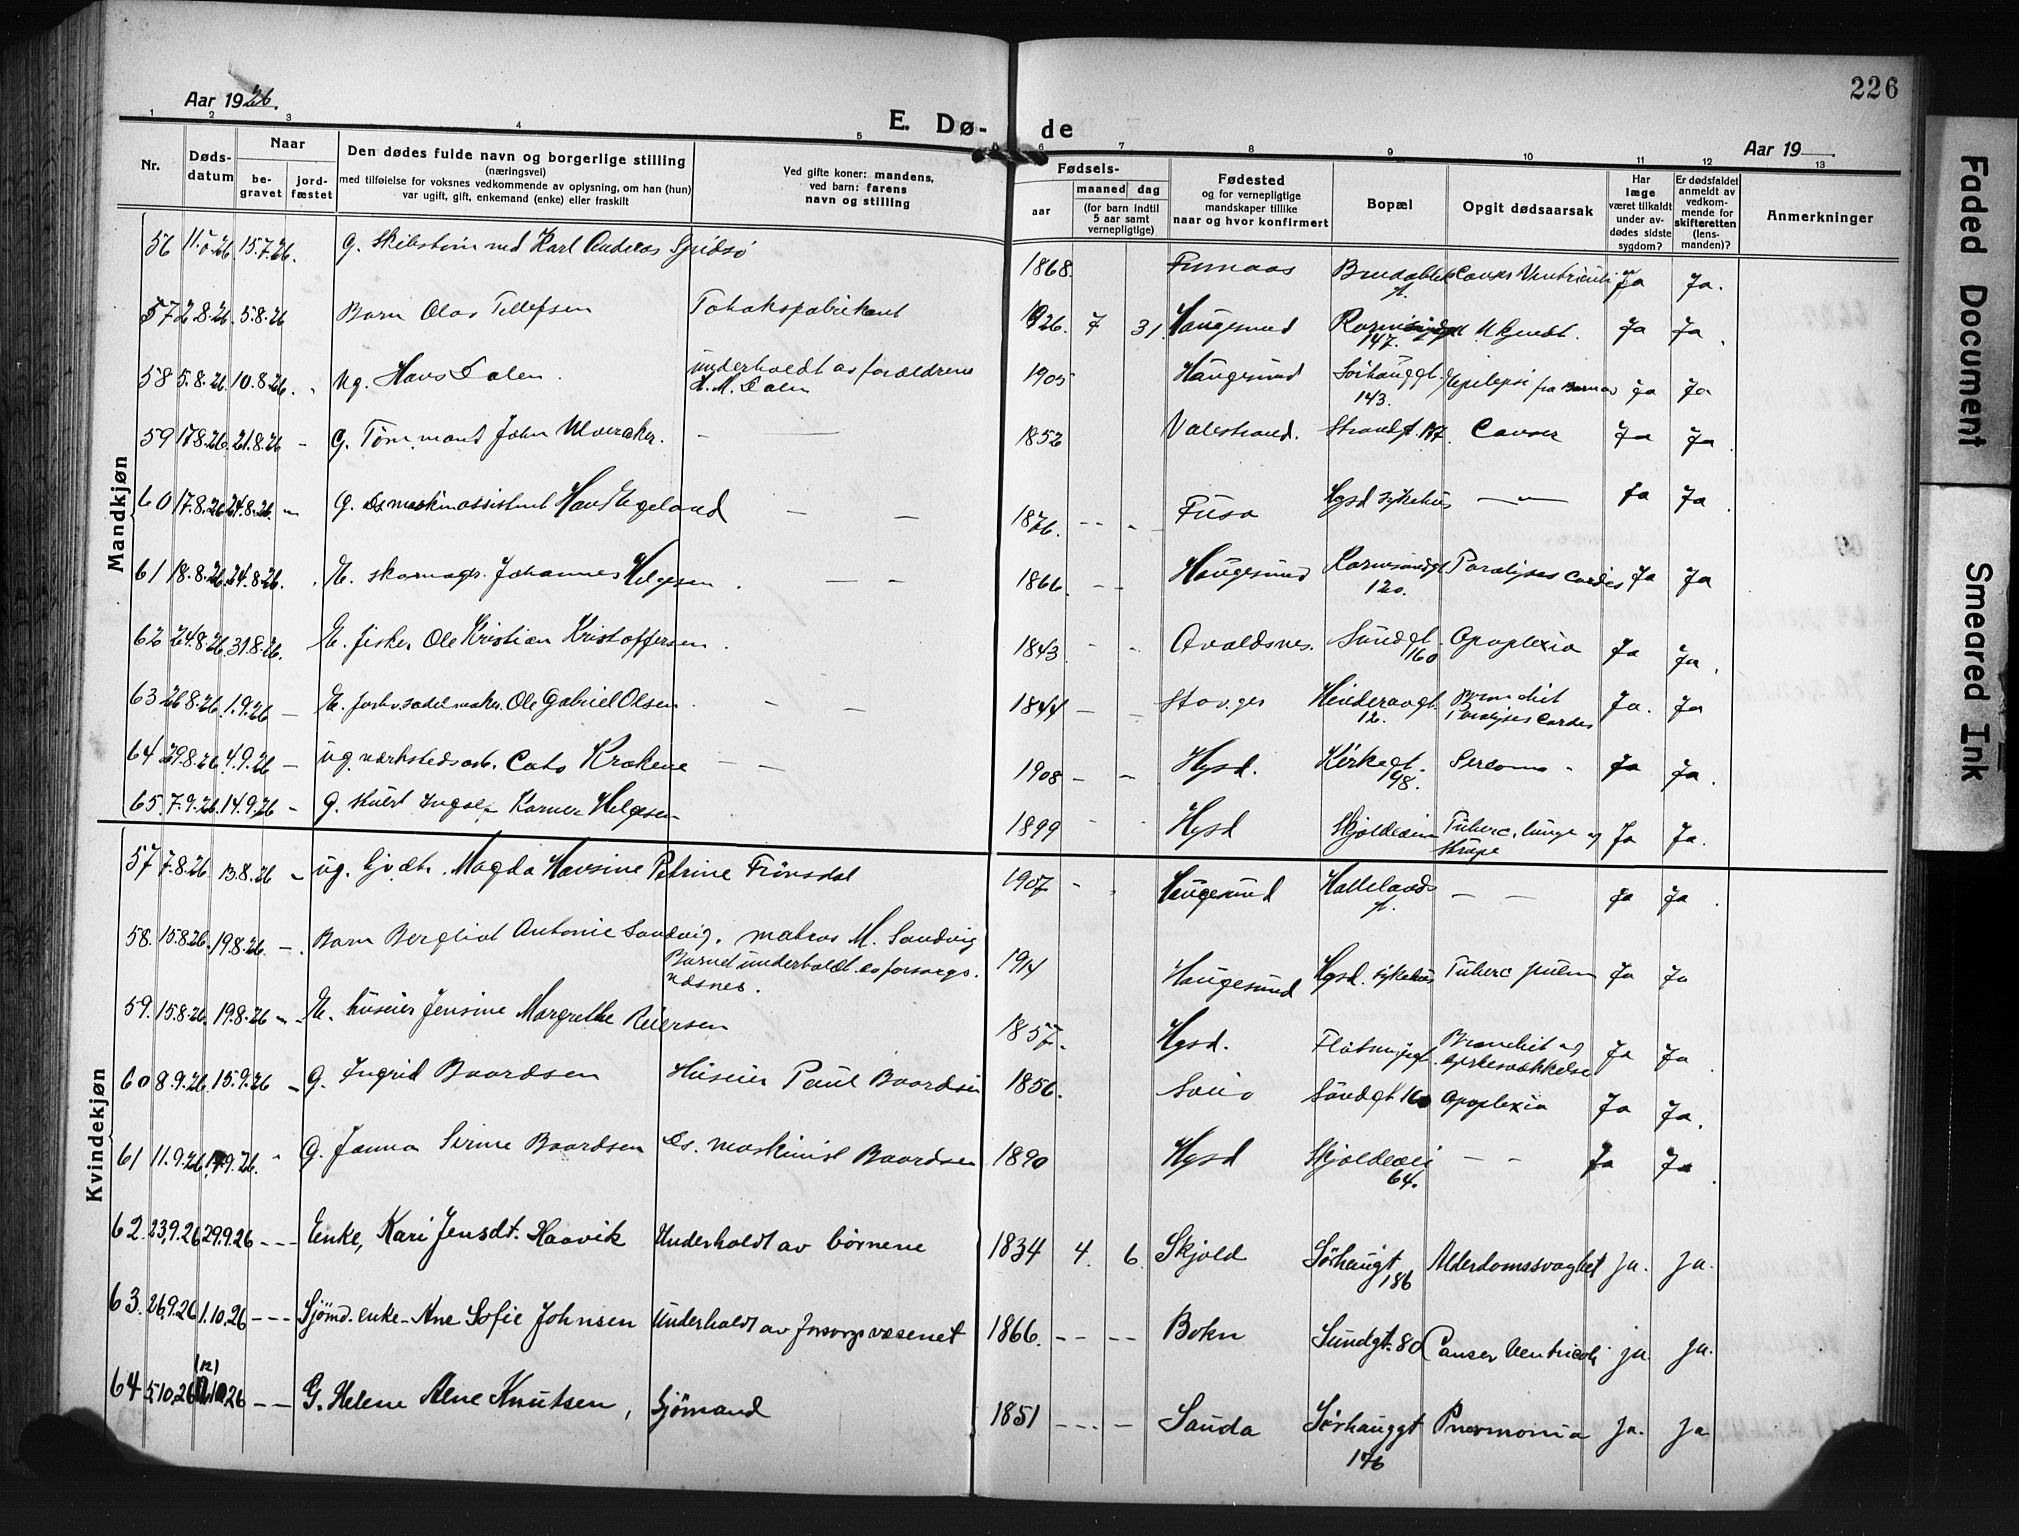 226
Aar 1926.
E. Dø-
de
Aar 19
1 2 3 4 5 6 7 8 9 10 11 12 13
Nr.
Døds-
datum
Naar
be-
gravet
jord-
fæstet
Den dødes fulde navn og borgerlige stilling
(næringsvei)
med tilføielse for voksnes vedkommende av oplysning, om han (hun)
var ugift, gift, enkemand (enke) eller fraskilt
Ved gifte koner: mandens,
ved barn: farens
navn og stilling
Fødsels-
aar
maaned
dag
(for barn indtil
5 aar samt
vernepligtige)
Fødested
og for vernepligtige
mandskaper tillike
naar og hvor konfirmert
Bopæl
Opgit dødsaarsak
Har
læge
været tilkaldt
under av-
dødes sidste
sygdom?
Er dødsfaldet
anmeldt av
vedkom-
mende for
skifteretten
(lens-
manden)?
Anmerkninger
Mandkjøn
56 15.7.26. g. Karl Andreas 1868. Ja Ja.
57 2.8.26. 5.8.26 Barn Olav Tellefsen Tobaksfabrikant 1926. 7 31 Haugesund 147. Ukjendt. Ja Ja
58 5.8.26. 10.8.26. ug. Hans Dalen. underholdt av forældrene 1905 Haugesund Sørhauggt. Epilepsi fra Ja Ja
H. M. Dalen 143.
59 17.8.26. 21.8.26 - g. John - 1852 Valestrand. Strandgt. Cancer Ja Ja
60 17.8.26. 24.8.26. g. Ds maskinassistent Hans Egeland - - 1876. Fusa Hgsd sykehus - " - Ja Ja
61 18.8.26. 24.8.26. E. skomager. Johannes Helgesen - - 1866. Haugesund Karmsundgt Paralyses Cordis Ja Ja
120.
62 24.8.26 31.8.26. E. fisker Ole Kristian Kristoffersen 1843 Avaldsnes. Sundgt Apoplexia Ja Ja.
160
63 26.8.26. 1.9.26 - E. forhv. sadelmaker. Ole Gabriel Olsen - - 1844 Stavger Ja. Ja
12. Paralyses Cordes
64 29.8.26 4.9.26 - ug verkstedsarb. Cato Krokene - - 1908 Hgsd. Kirkegt. Ja Ja.
65. 7.9.26. 14.9.26 - g. Helgesen 1899 Hgsd Skjoldeveien Tuberc. lunge og Ja Ja.
strupe
Kvindekjøn
57 7.8.26. 13.8.26 - ug. Magda Hansine Petrine Frønsdal 1907 Haugesund - - Ja Ja
58. 15.8.26. 19.8.26 -. Barn Bergliot Antonie Sandvig. matros M. Sandvig 1914 Haugesund Hgsd. sykehus Tuberc pulm Ja Ja
Barnet underholdt av forsorgs.
væsnet.
59. 15.8.26. 19.8.26 E. huseier Jensine Margrethe Reiersen 1857. Hgsd. Bronchit og Ja Ja
60 8.9.26. 15.9.26 - g. Ingrid Baardsen Huseier Paul Baardsen 1856. Sundgt 160 Apoplexia Ja Ja.
61 11.9.26. g. Janna Baardsen Ds. maskinist Baardsen 1890 Hgsd Skjoldevei - - Ja Ja
64.
62. 23.9.26 29.9.26 - - - Enke, Kari Jensdt. Haavik Underholdt av børnene 1834 4. 6. Skjold Sørhaugt Alderdomssvaghet ja. ja.
186
63. 26.9.26 1.10.26 - - - Sjømd. enke - Ane Sofie Johnsen Underholdt av forsorgsvæsenet 1866. - - - - Bokn Sundgt. 80 Canser Ventricoli ja. ja.
64 5.10.26 (12) 10.26 - - G. Helene Alne Knutsen, Sjømand 1851 - - - - Sauda Sørhauggt Pnevmonia ja. ja.
176
Faded Document
Smeared Ink